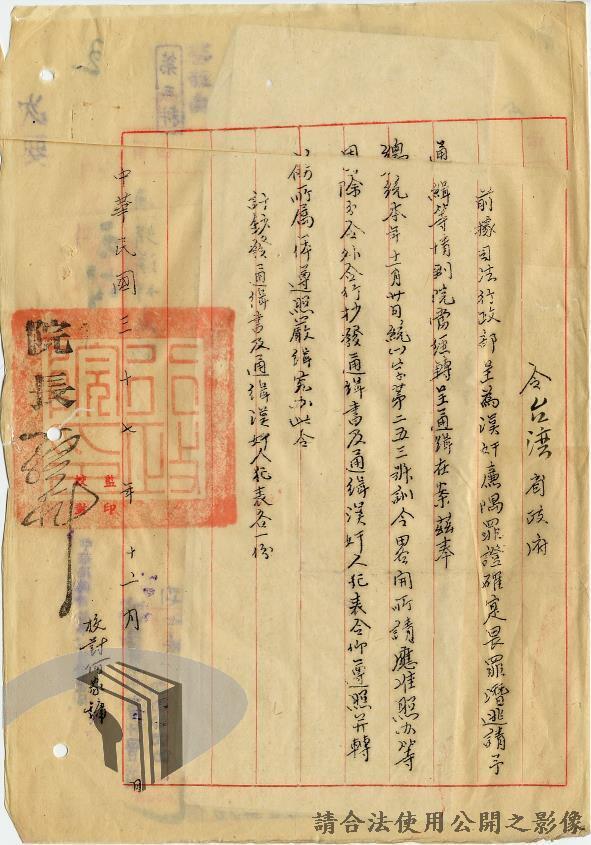 令台湾省政府
前據司法行政部呈為漢奸廉隅罪證確定畏罪潛逃請予
通緝等情到院當經轉呈通緝在案茲奉
總統本年十一月廿日統(一)字第二五三號訓令畧開所請應准照办等
因除分令外合行抄發通緝書及通緝漢奸人犯表令仰遵照并轉
飭所屬一体遵照嚴緝究办此令
計抄發通緝書及通緝漢奸人犯表各一份
院長
中華民國三十七年十二月 日
監印
校對
請合法使用公開之影像